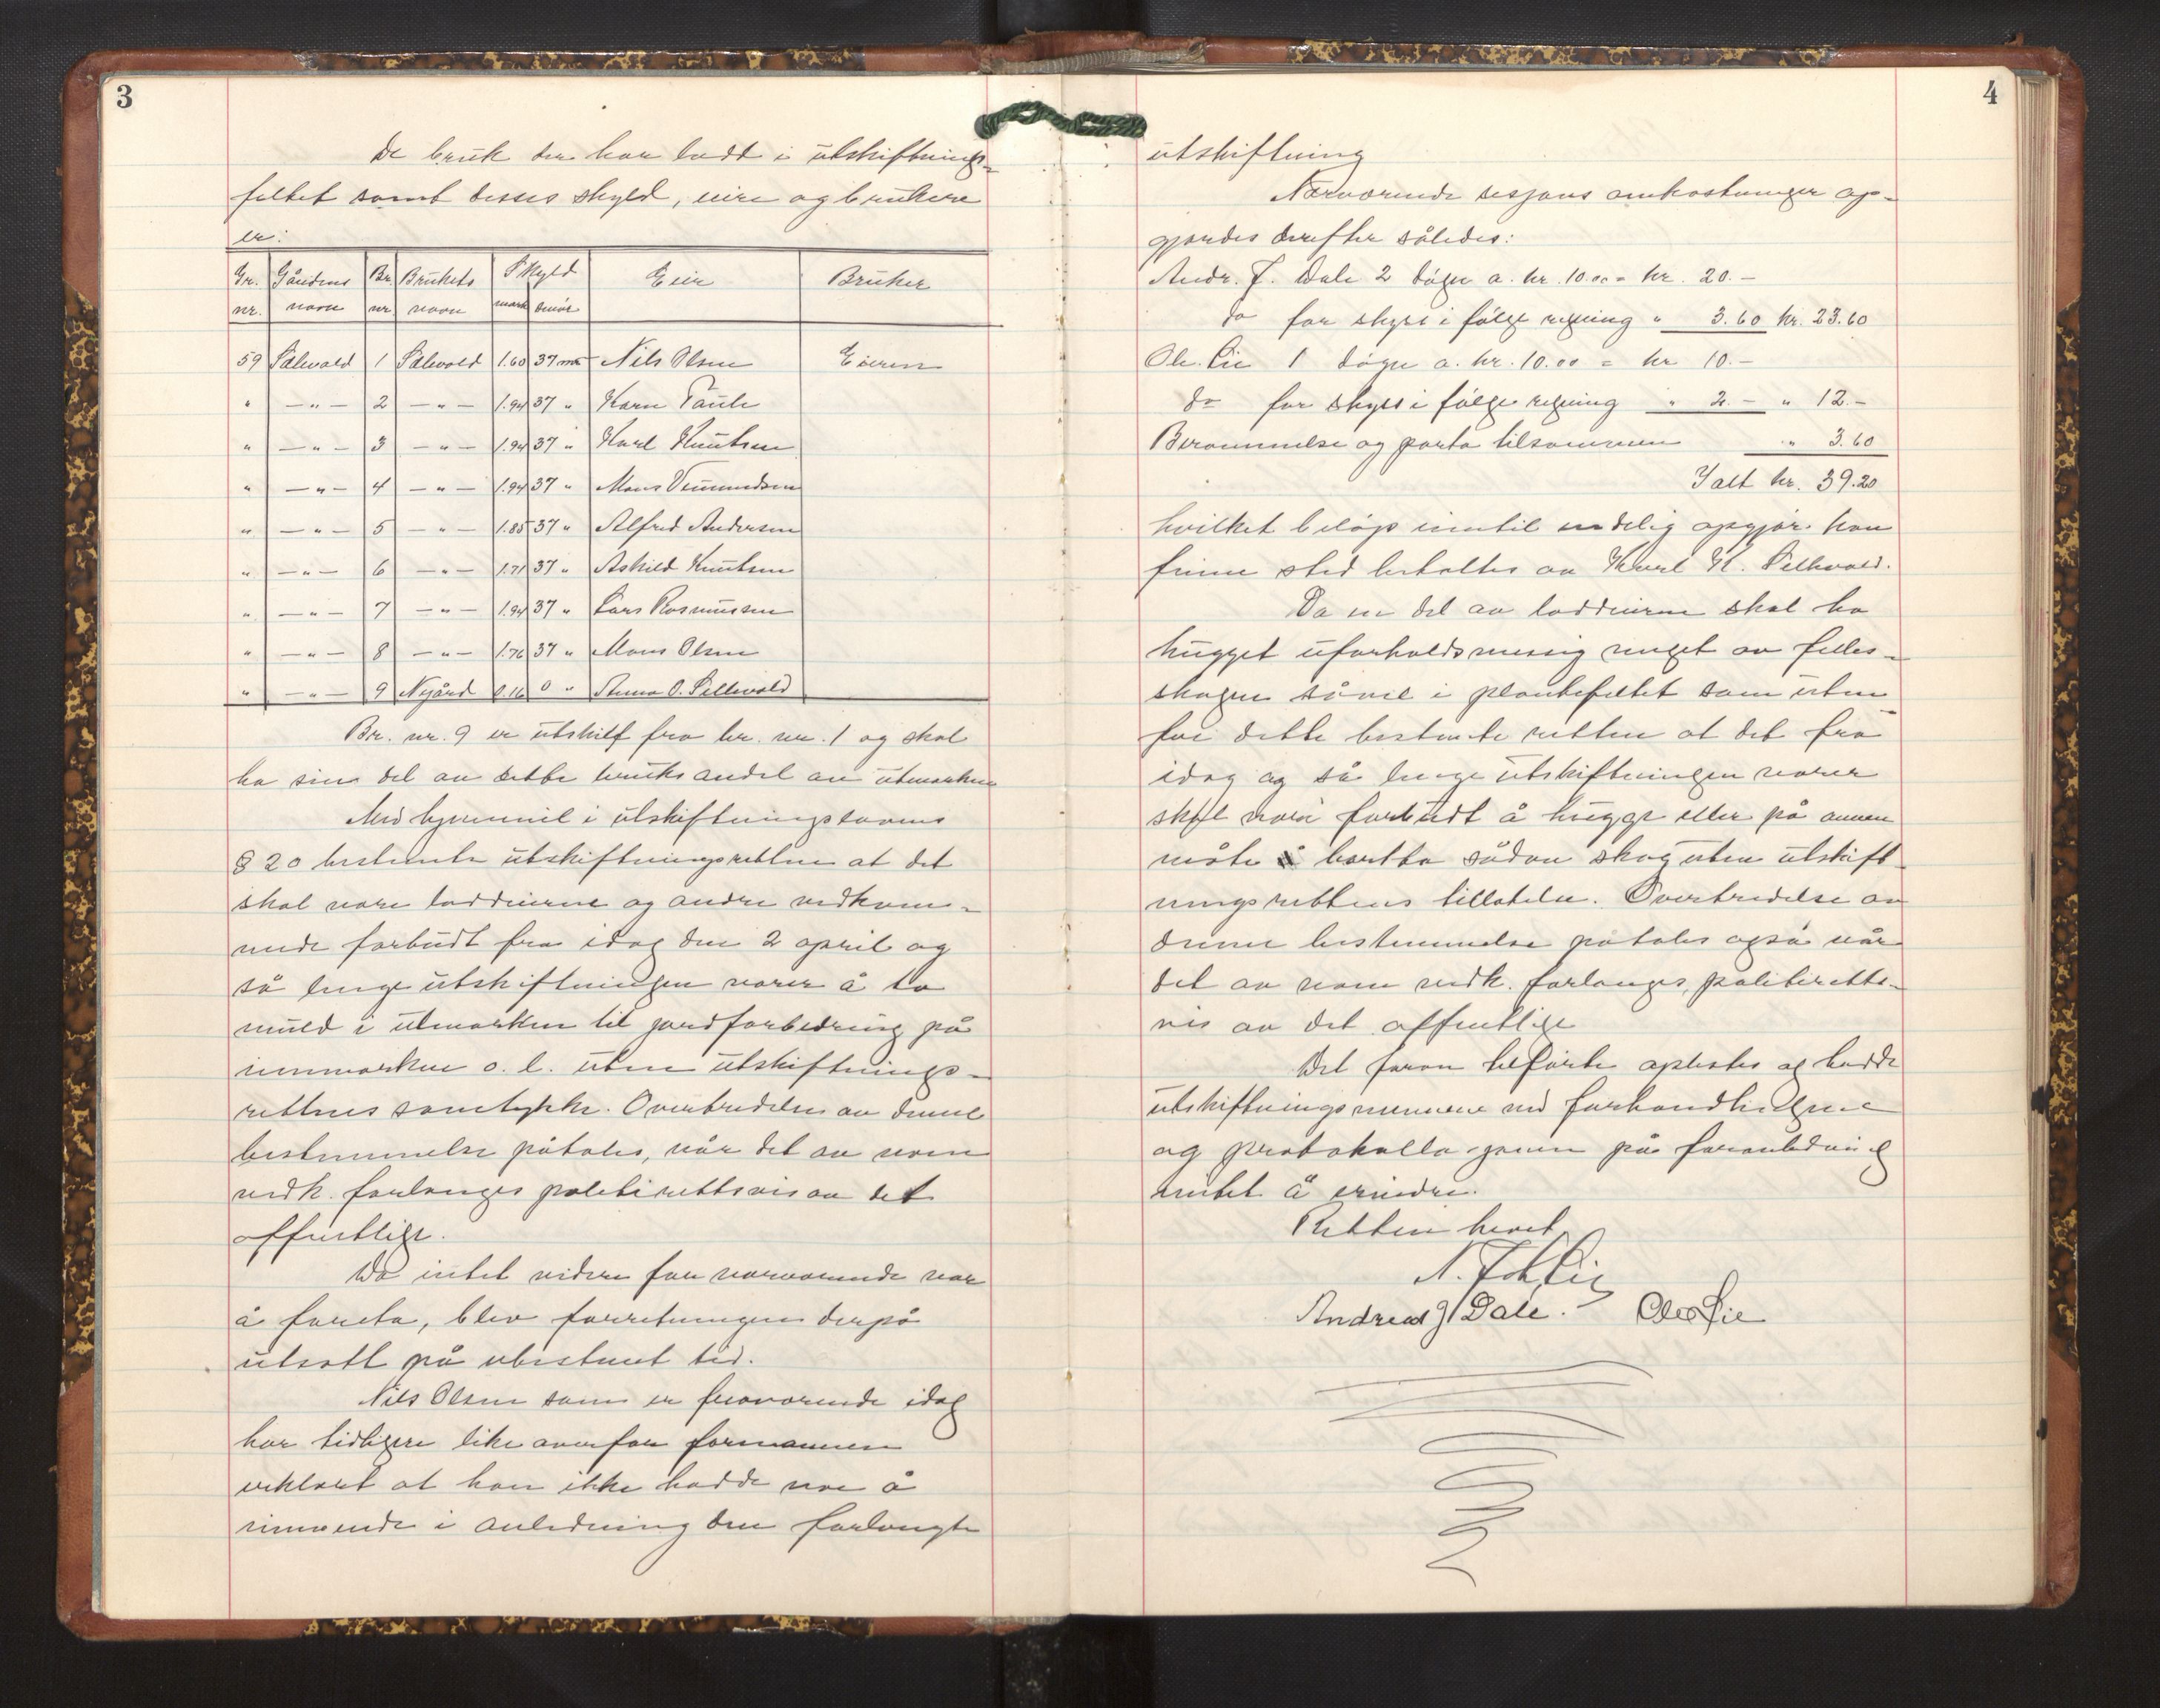 3
De bruk der har lodd i utskiftnings-
feltet samt disses skyld, eiere og brukere
er:
Gr. nr. | Gårdens navn | Br. nr. | Brukets navn | Skyld mark | 37 | Eier | Bruker
59 | Sælevold | 1 | Sælevold | 1.60 | 37 | Nils Olsen | Eieren
" | —"— | 2 | —"— | 1.94 | 37 " | Karn Paule
" | —"— | 3 | —"— | 1.94 | 37 " | Karl Knutsen
" | —"— | 4 | —"— | 1.94 | 37 " | Mons Vemundsen
" | —"— | 5 | —"— | 1.85 | 37 " | Alfred Andersen
" | —"— | 6 | —"— | 1.71 | 37 " | Askild Knutsen
" | —"— | 7 | —"— | 1.94 | 37 " | Lars Rasmussen
" | —"— | 8 | —"— | 1.76 | 37 " | Mons Olsen
" | —"— | 9 | Nygård | 0.16 | 0 " | Anna O. Sellevold
Br. nr. 9 er utskilt fra br. nr. 1 og skal
ha sin del av dette bruks andel av utmarken
Med hjemmel i utskiftningslovens
§ 20 bestemte utskiftningsretten at det
skal være loddeierne og andre vedkom-
mende forbudt fra idag den 2 april og
så lenge utskiftningen varer å ta
muld i utmarken til jordforbedring på
innmarken o. l. uten utskiftnings-
rettens samtykke. Overtredelse av denne
bestemmelse påtales, når det av noen
vedk. forlanges politirettsvis av det
offentlige.
Da intet videre for nærværende var
å foreta, blev forretningen derpå
utsatt på ubestemt tid.
Nils Olsen som er fraværende idag
har tidligere like overfor formannen
erklært at han ikke hadde noe å
innvende i anledning den forlangte
4
utskiftning
Nærværende sesjons omkostninger op-
gjordes derefter således:
Andr. J. Dale 2 døgn a. kr. 10.00 = kr. 20.—
do for skyss i følge regning " 3.60 kr. 23.60
Ole Lie 1 døgn a. kr. 10.00 = kr 10.—
do for skyss i følge regning " 2.— " 12.—
Berammelse og porto tilsammen " 3.60
Ialt kr. 39.20
hvilket beløp inntil endelig opgjør kan
finne sted betaltes av Karl K. Sellevold.
Da en del av loddeierne skal ha
hugget uforholdsmessig meget av felles-
skogen såvel i plantefeltet som uten-
for dette bestemte retten at det fra
idag og så lenge utskiftningen varer
skal være forbudt å hugge eller på annen
måte bortta sådan skog uten utskift-
ningsrettens tillatelse. Overtredelse av
denne bestemmelse påtales også når
det av noen vedk. forlanges, politiretts-
vis av det offentlige
Det foran tilførte oplestes og hadde
utskiftningsmennene ved forhandlingene
og protokollasjonen på foranledning
intet å erindre.
Retten hevet
Andreas J Dale. Ole Lie